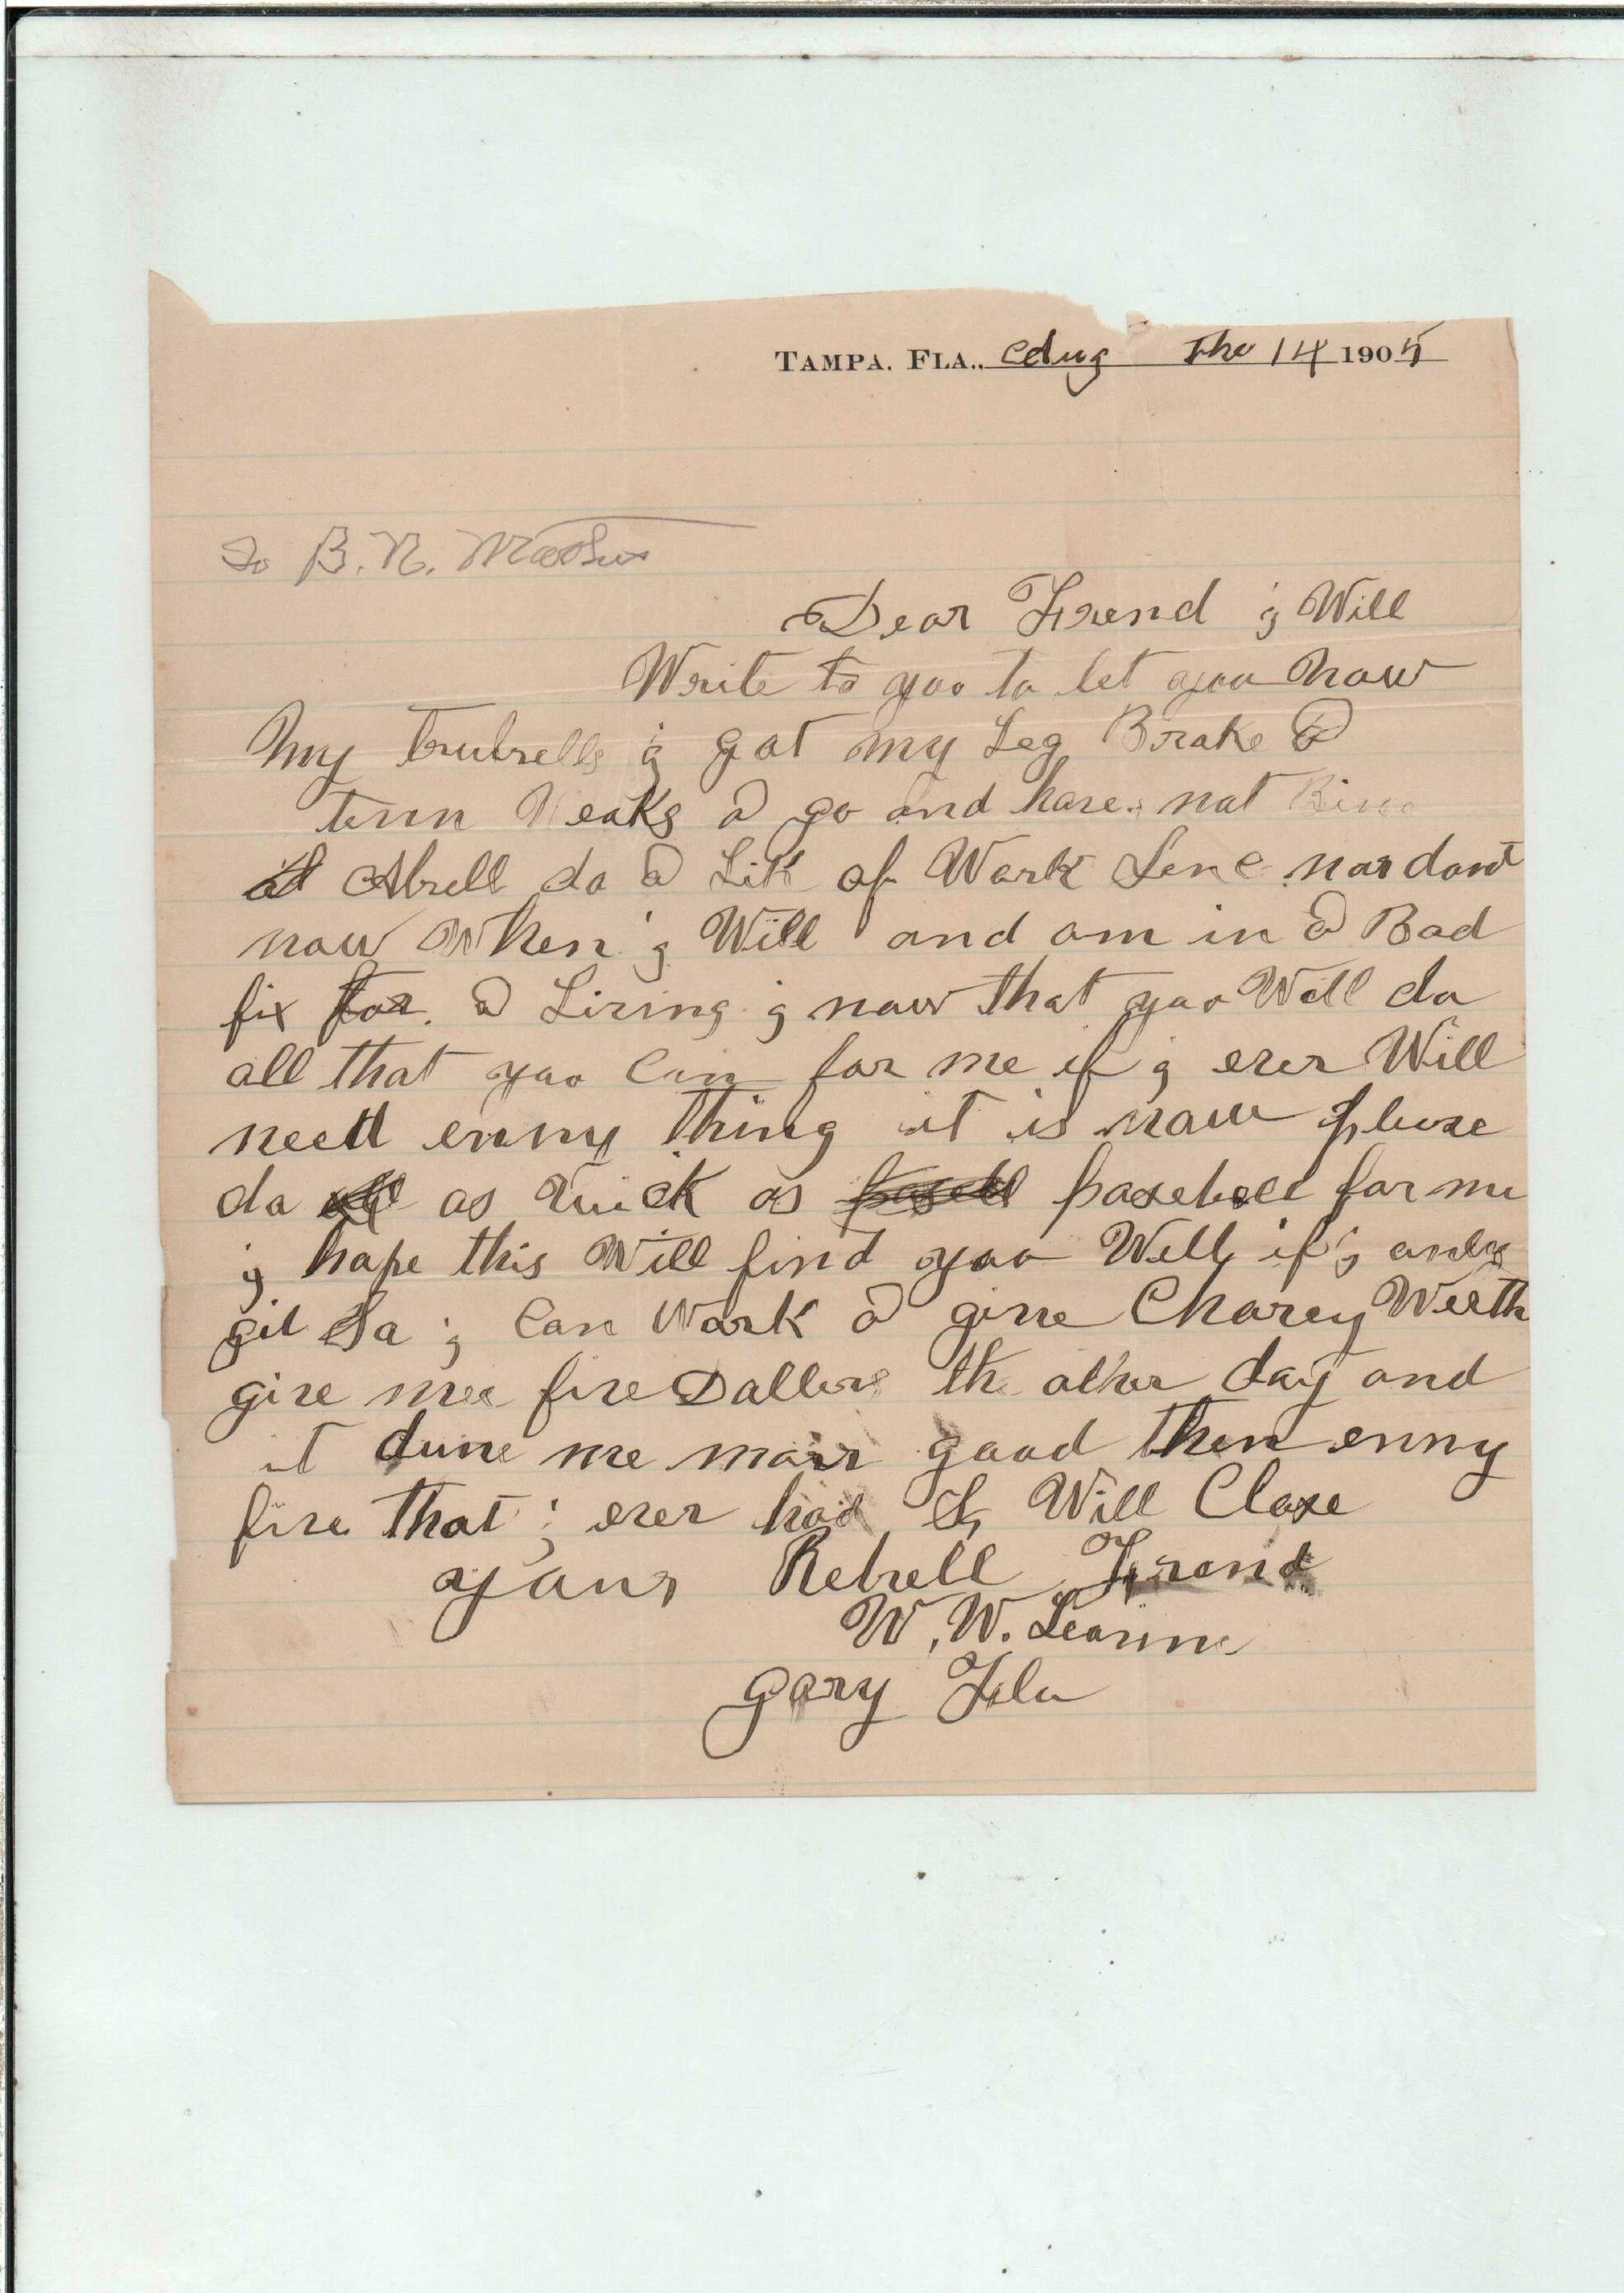 TAMPA, FLA., Aug The 14 1905
To B. N.
Dear Frend i Will
Write to yoo to let yoo now
My trubells i got my Leg Brake a
tenn Weaks a go and have not Bino
at Abell do a Lik of Work Senc nor dont
now When i Will and am in a Bad
fix for a Living i now that yoo Will do
all that yoo Can for me if i ever Will
need enny thing it is now please
do all as Quick as posebell for me
i hope this Will find yoo Well if i only
git So i Can Work a gine Charey Weeth
give mee five Dallers the other day and
it dune me morr good then enny
five that i ever had I Will Close
yours Rebell Frend
W. W.
Gary Fla